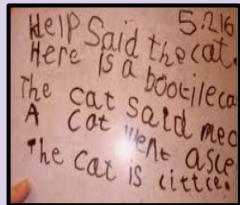 5.216
Help Said the cat.
Here is a bootileca
The cat said meo
A cat went asle
The cat is cittce.